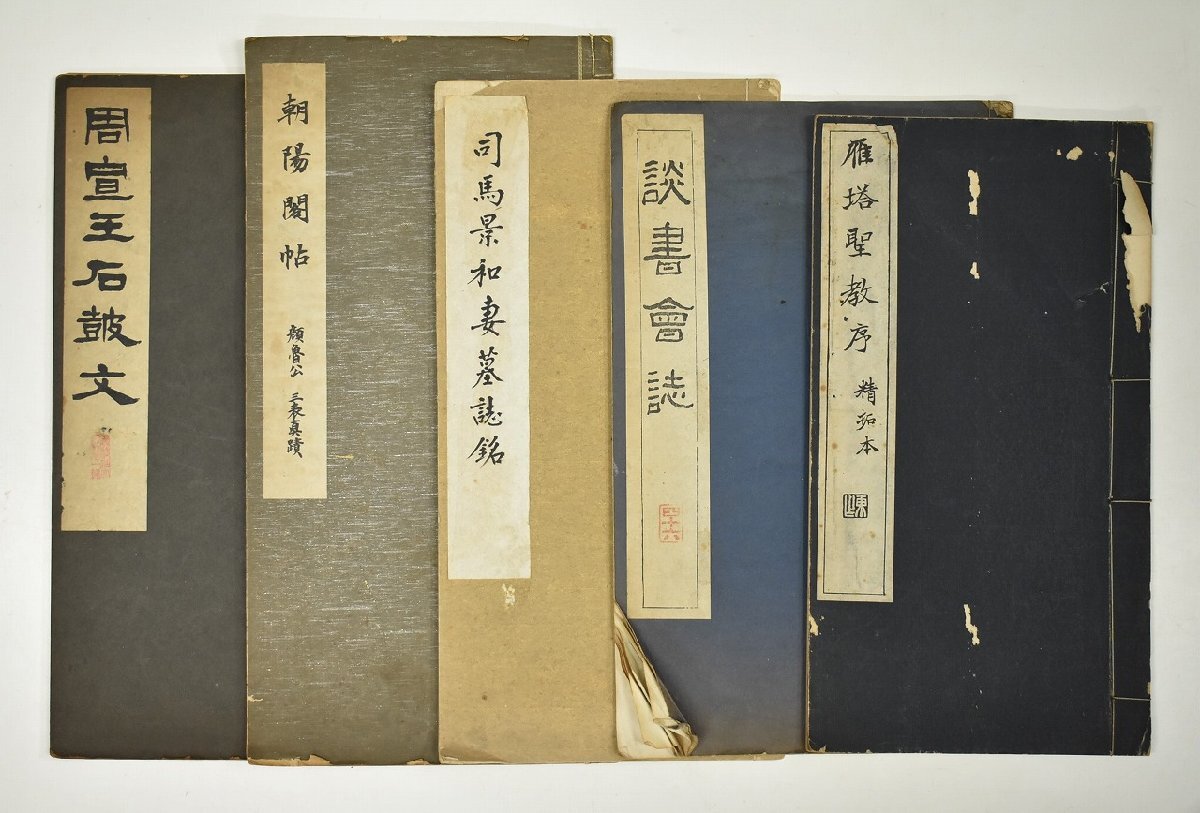 周宣王石皷文
朝陽閣帖
顏魯公 三表真蹟
司馬景和妻墓誌銘
談書會誌
四十六
雁塔聖教序
精拓本